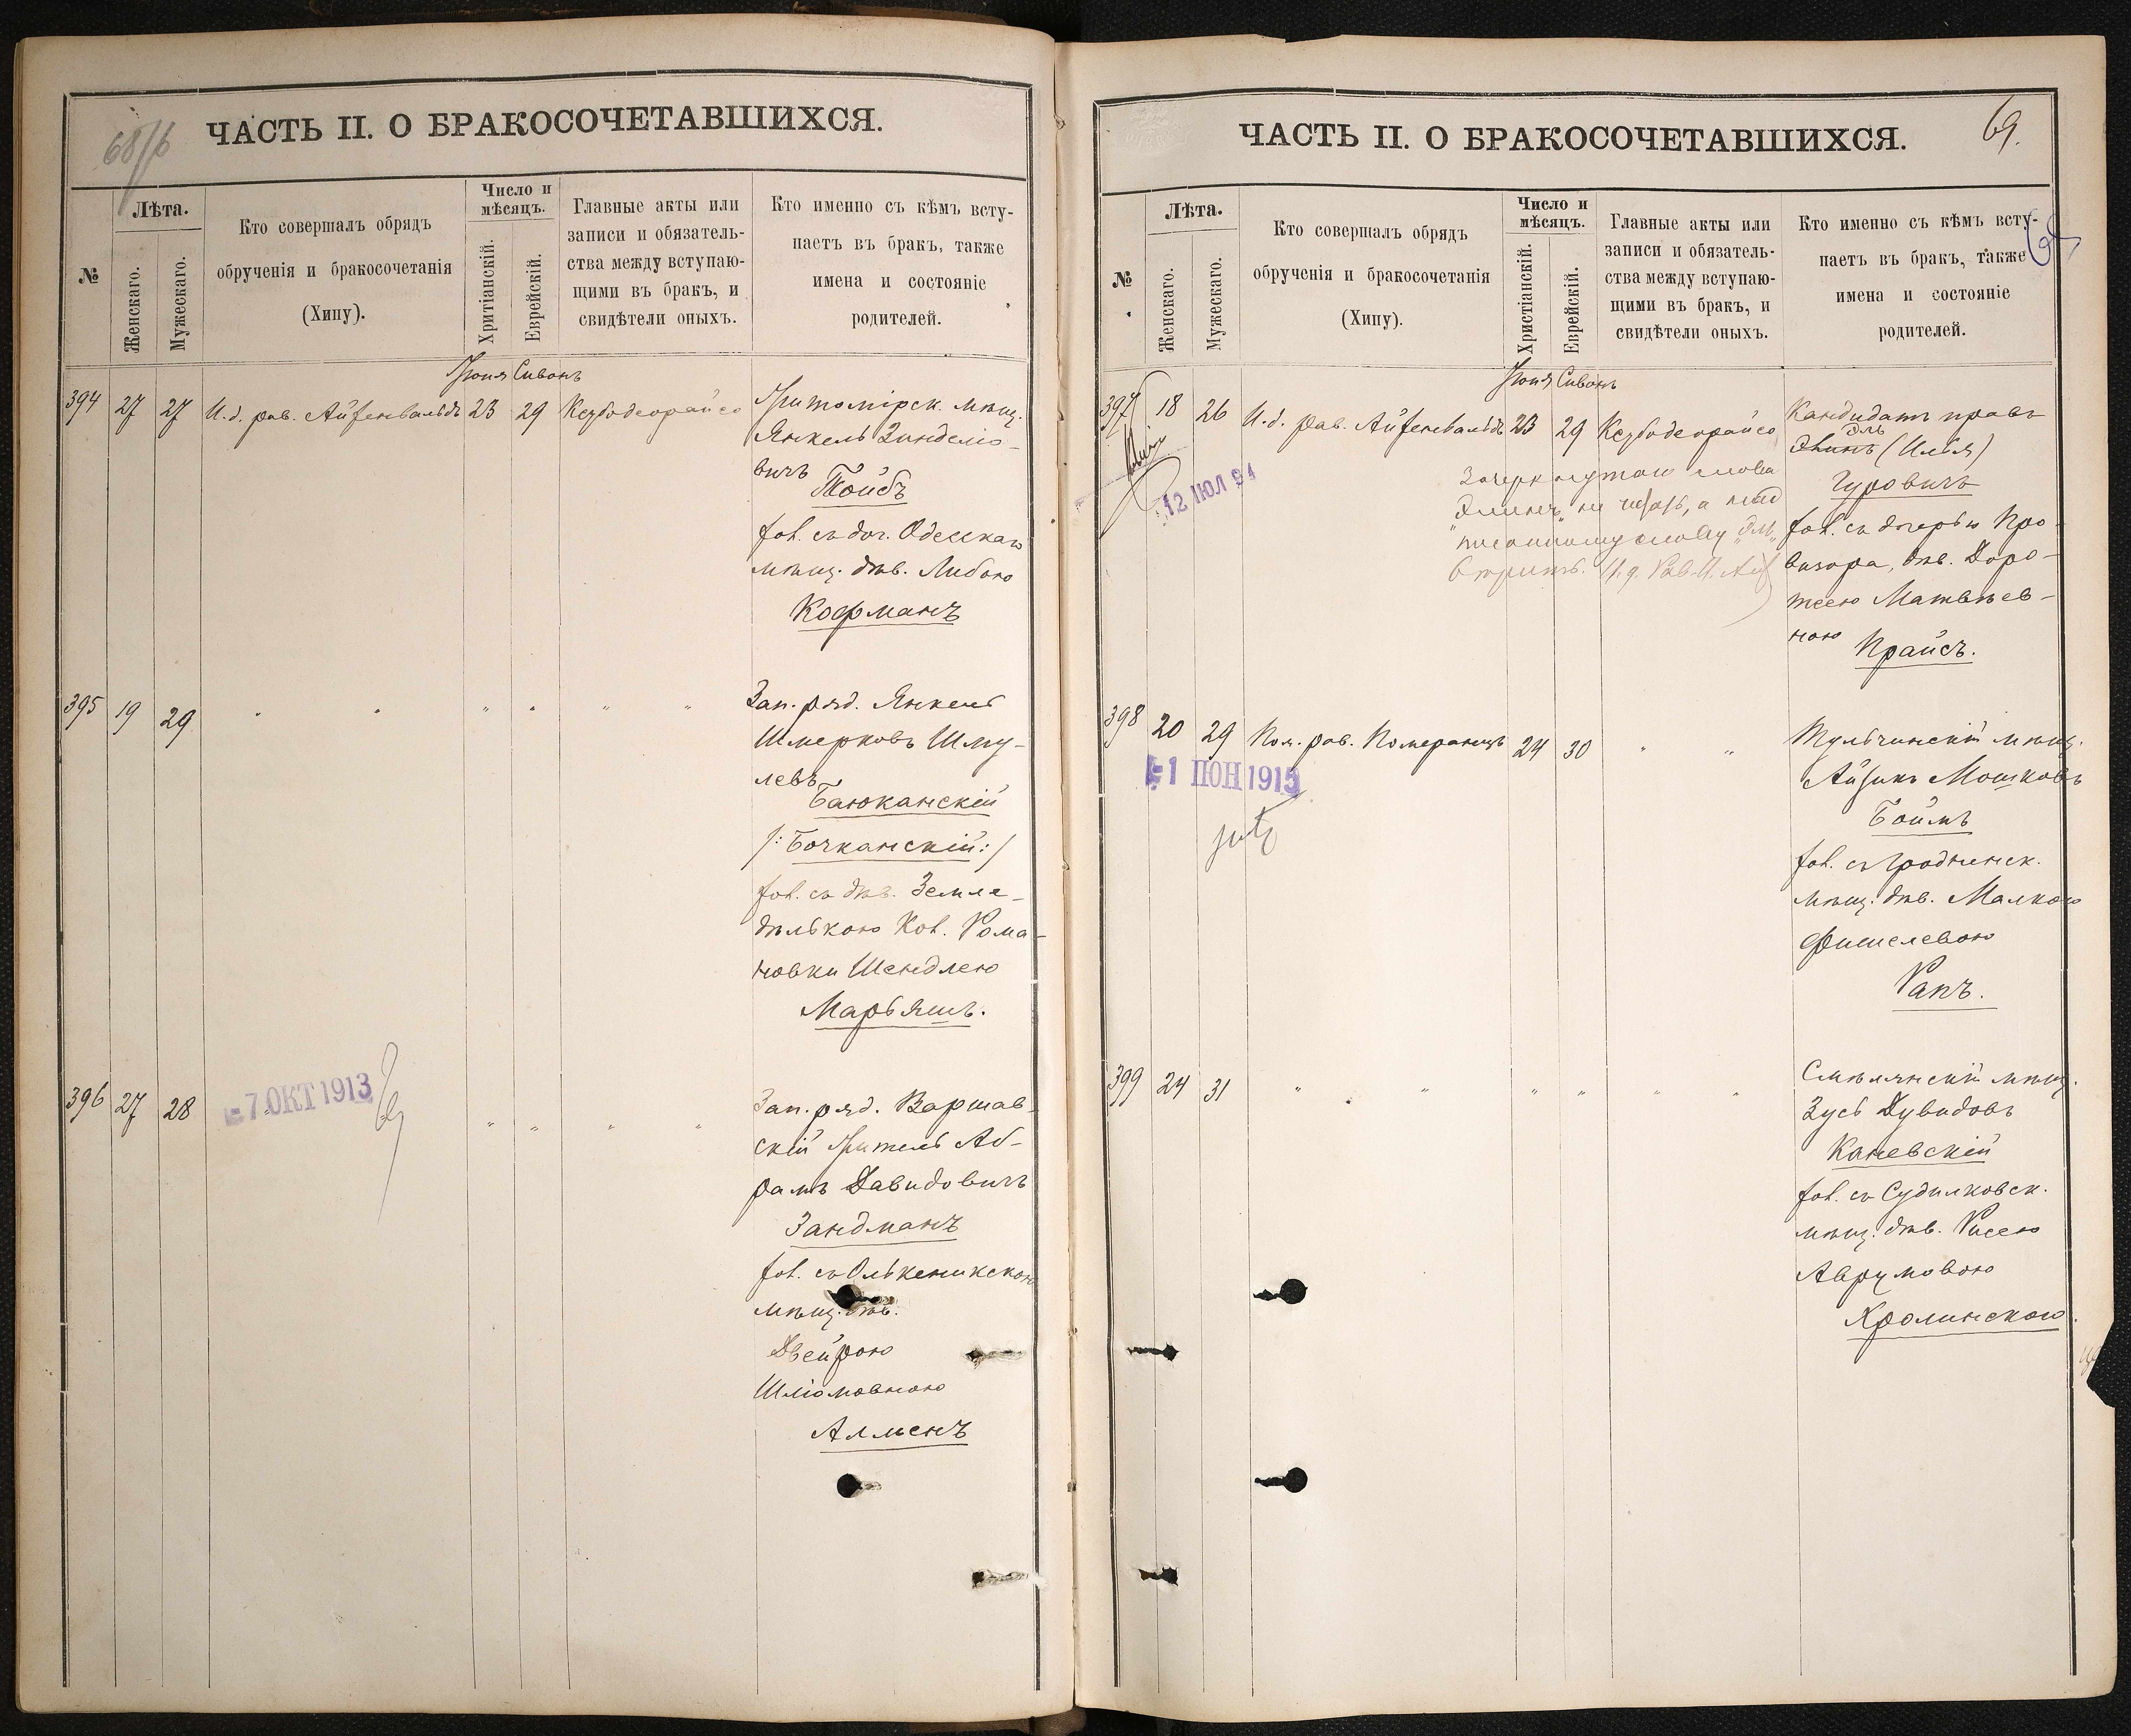 68/б
ЧАСТЬ II. О БРАКОСОЧЕТАВШИХСЯ.
№
Лѣта.
Женскаго.
Мужескаго.
Кто совершалъ обрядъ
обрученія и бракосочетанія
(Хипу).
Число и
мѣсяцъ.
Хритіанскій.
Еврейскій.
Главные акты или
записи и обязатель-
ства между вступаю-
щими въ бракъ, и
свидѣтели оныхъ.
Кто именно съ кѣмъ всту-
паетъ въ бракъ, также
имена и состояніе
родителей.
Іюня Сивонъ
394 27 27 И.д. рав. Айзенвальдъ 23 29 Кезбодеорайсо
Житомірск. мѣщ.
Янкель Зинделіо-
вичъ
Тойбъ
зак. съ доч. Одесскаго
мѣщ. дѣв. Либою
Кофманъ
395 19 29 " " " " " "
Зап. ряд. Янкель
Шмерковъ Шму-
левъ
Баюканскій
/:Бочканскій:/
съ дѣв. Земле-
дѣлькою Кол. Рома-
новки Шендлею
Марьяшъ.
396 27 28 " " " " "
-7.ОКТ 1913
Зап. ряд. Варшав-
скій житель Аб-
рамъ Давидовичъ
Зандманъ
съ Олькеникскою
мѣщ. дѣв.
Двейрою
Шліомовною
Алменъ
69.
ЧАСТЬ II. О БРАКОСОЧЕТАВШИХСЯ.
№
Лѣта.
Женскаго.
Мужескаго.
Кто совершалъ обрядъ
обрученія и бракосочетанія
(Хипу).
Число и
мѣсяцъ.
Христіанскій.
Еврейскій.
Главные акты или
записи и обязатель-
ства между вступаю-
щими въ бракъ, и
свидѣтели оныхъ.
Кто именно съ кѣмъ всту-
паетъ въ бракъ, также
имена и состояніе
родителей.
Іюня Сивонъ
397 18 26 И.д. рав. Айзенвальдъ 23 29 Кезбодеорайсо
12 ИЮЛ 94
Кандидатъ правъ
(Илья)
Гуровичъ
съ дочерью Про-
визора, дѣв. Доро-
теею Матвѣев-
ною
Прайсъ.
слова
не читать, а над
писанному слову
вѣрить. И.д. Рав.
398 20 29 Пом. рав. Померанцъ 24 30 " "
-1 ИЮН 1915
Тульчинскій мѣщ.
Айзикъ Мошковъ
Боймъ
съ Гродненск.
мѣщ. дѣв. Малкою
Фишелевою
Рапъ.
399 24 31 " " " " " "
Смѣлянскій мѣщ.
Зусь Дувидовъ
Каневскій
съ Судилковск.
мѣщ. дѣв. Рисею
Аврумовою
Кролинскою.